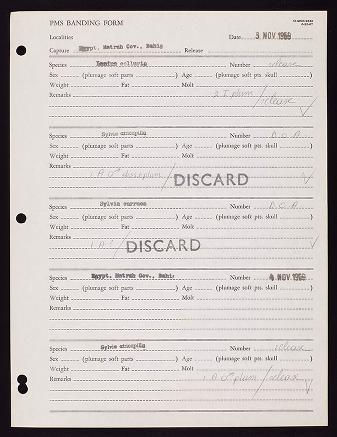 PMS BANDING FORM
Localities Date 3 NOV 1968
Capture Egypt, Matrah Gov., Bahig Release
Species Lanius collurio Number release
Sex (plumage soft parts ) Age (plumage soft pts. skull )
Weight Fat Molt
Remarks 2 I plum / release
Species Sylvia Number D.O.A.
Sex (plumage soft parts ) Age (plumage soft pts. skull )
Weight Fat Molt
Remarks 1 A ♂ plum / DISCARD
Species Sylvia curruca Number D.O.A.
Sex (plumage soft parts ) Age (plumage soft pts. skull )
Weight Fat Molt
Remarks 1 A / DISCARD
Egypt, Matrah Gov., Bahig Number 4 NOV 1968
Sex (plumage soft parts ) Age (plumage soft pts. skull )
Weight Fat Molt
Remarks
Species Sylvia Number release
Sex (plumage soft parts ) Age (plumage soft pts. skull )
Weight Fat Molt
Remarks 1 A ♂ plum / release